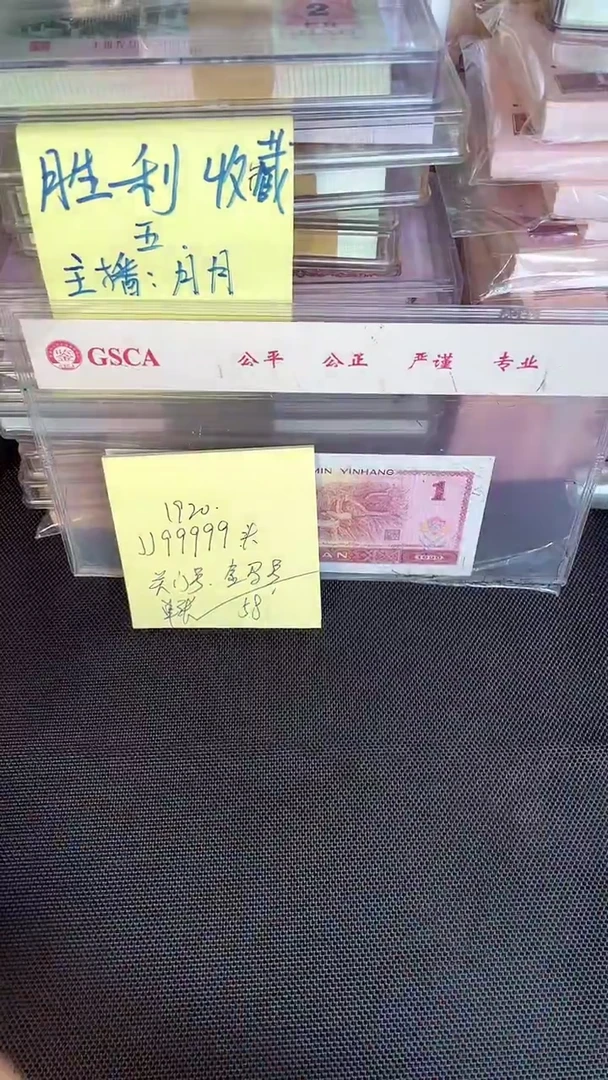 2
胜利收藏
五.
主播:月月
GSCA 公平 公正 严谨 专业
MIN YINHANG
1
1990
1920.
JJ99999头
关门号.
单张 58